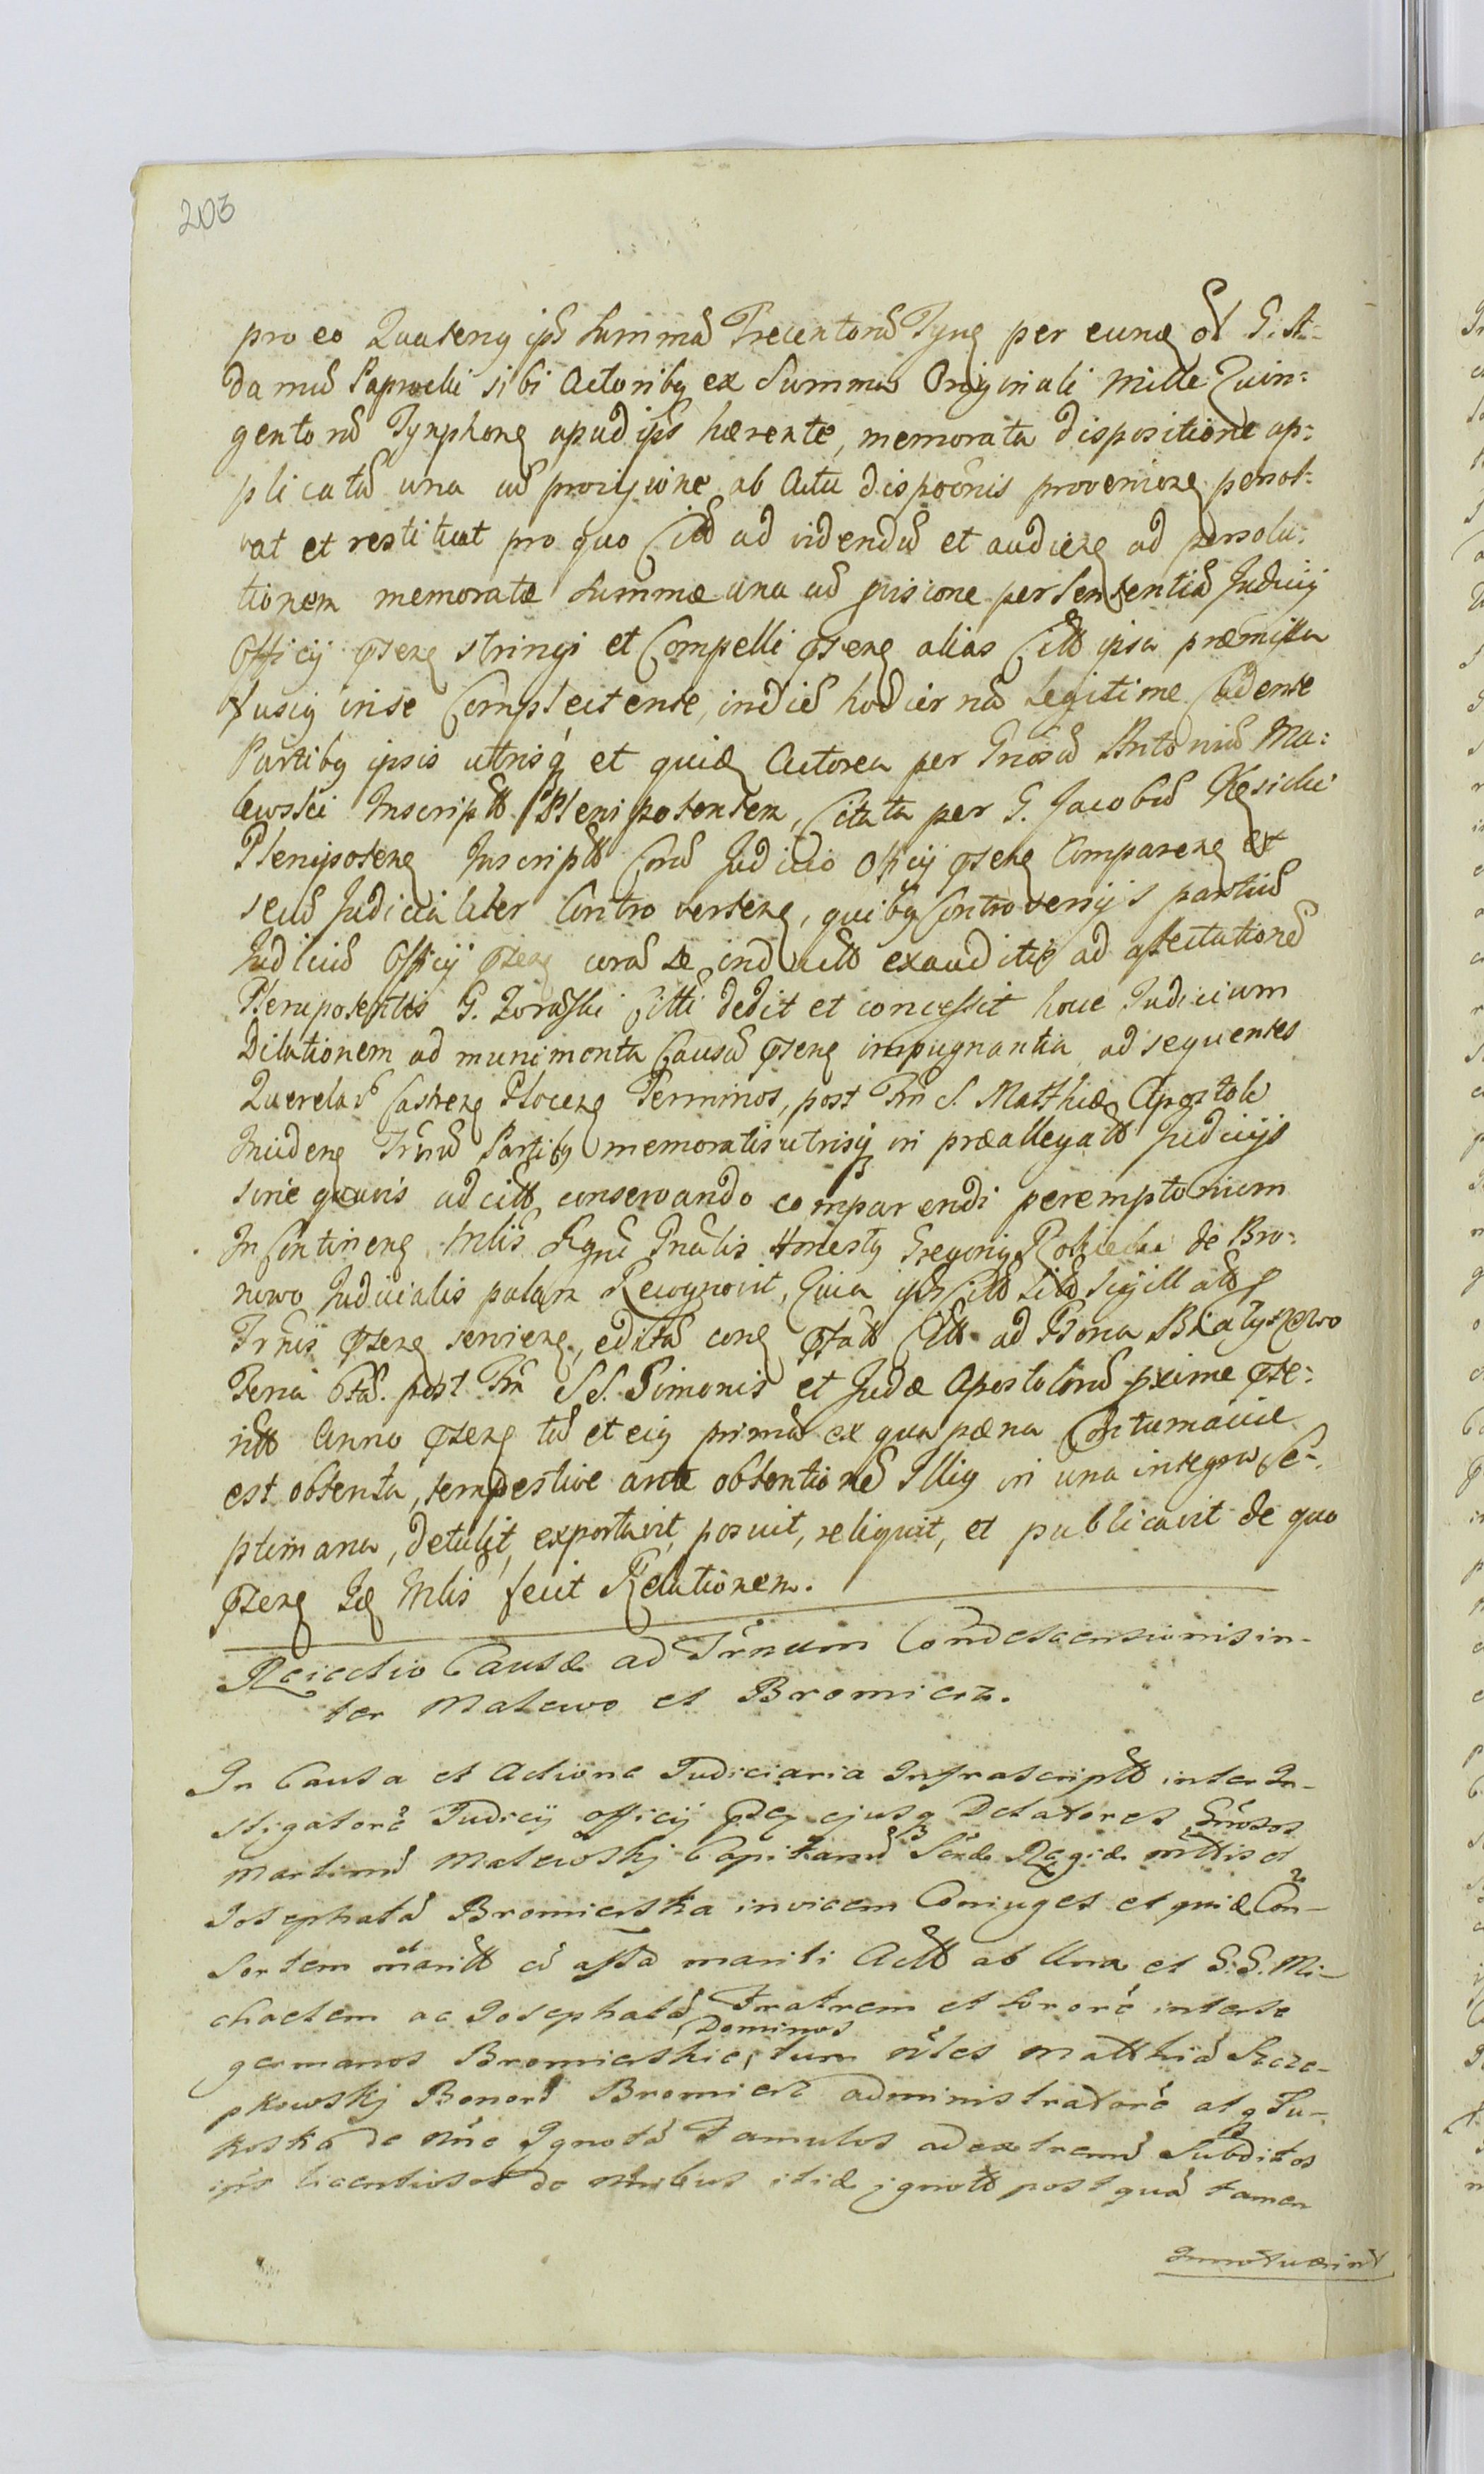 203
pro eo Quateng ips Summam Trecentoru Tynf per eund ol G. A-
damu Paprocki sibi Actoribg ex Summa Originali Mille Quin:
gentoru Tynphong apud ips hærente, memorata dispositione ap:
plicatam una cu provisione ab Actu dispoonis proveniens persol:
vat et restituat pro quo Citt ad videndu et audiend ad persolu:
tionem memoratæ Summæ una cu pvisione per Sententiam Judicij
Officij pseng stringi et Compelli pseng alias Citto ipsa præmissa
fusig in se Complectente, in diem hodiernam Legitime Cadente
Partibg ipsis utrisq et quidem Actorea per Gnosu Antoniu Ma:
lewski Inscriptt Plenipotentem, Citata per G. Jacobu Kęsicki
Plenipoteng Inscriptt Coram Judicio Officij pseng Compareng et
secu Judicialiter Controverteng, quibg Controversijs partiu
Judiciu Officij pseng coram se inductt exauditis ad affectatione
Plenipotentis G. Citti dedit et concessit hocce Judicium
Dilationem ad munimenta Causam pseng impugnantia ad sequentes
Querelar Castreng Ploceng Terminos, post Fm S. Mathiæ Apostoli
Incideng Trnu Partibg memoratis utrisq in præallegatt Judicijs
sine quavis adcitt conservando comparendi peremptorium
In Contineng Mlis Regni Gnalis Honestg Gregorig de Bro:
nowo Judicialis palam Recognovit, Quia Citt Sigillatt
Trnis pseng servieng, edita cong pstatt Citt ad Bona Białyszewo
Feria post Fm SS. Simonis et Judæ Apostoloru pxime pte:
ritt Anno pseng tum et eig prima ex qua pæna Contumaciæ
est obtenta, tempestive ante obtentione Illig in una integra Se-
ptimana, detulit, exportavit, posuit, reliquit, et publicavit de quo
pseng Ide Mlis fecit Relationem.
Reiectio Causæ ad Trnum Condescensionis in-
ter Malewo et Bromierz.
In Causa et Actione Judiciaria Infrascriptt inter In-
stigatore Judicij officij pseg ejusq Delatores Gnosos
Martinu Malewskj Capitanu Sacræ Regiæ mttis et
Josephata Bromierska invicem Coniuges et quidæ Con-
sortem et maritt cu assa mariti Actt ab Una et G. G. Mi-
chaelem ac Josephata Fratrem et sorore inter se
germanos Bromierskie, Dominos tum nles Matthia Szcze-
pkowskj Bonoru Bromierz administratore atq Lu-
koska de nne Ignota Famulos ad extremu Subditos
ips licentiosos de nnibus itidæ ignott postqua tamen
Innotuerint